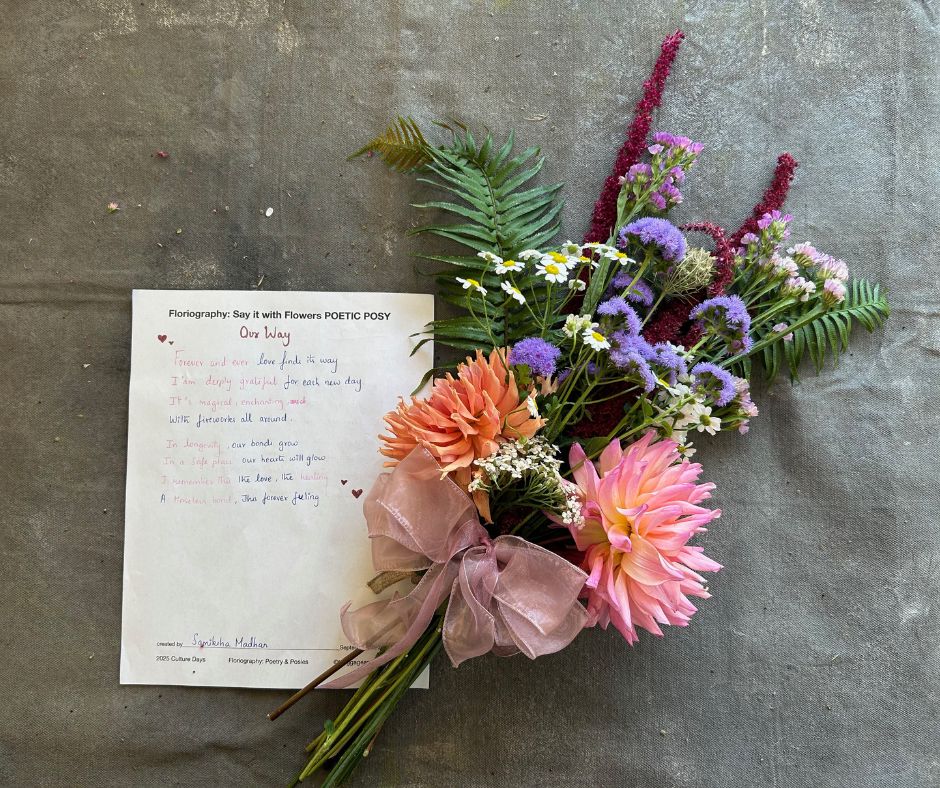 Floriography: Say it with Flowers POETIC POSY
Our Way
Forever and ever love finds its way
I'am deeply grateful for each new day
It's magical, enchanting,
With fireworks all around.
In longevity, our bonds grow
In a safe place our hearts will glow
I remember this the love, the healing
A timeless bond, this forever feeling
created by Samiksha Madhan
2025 Culture Days Floriography: Poetry & Posies